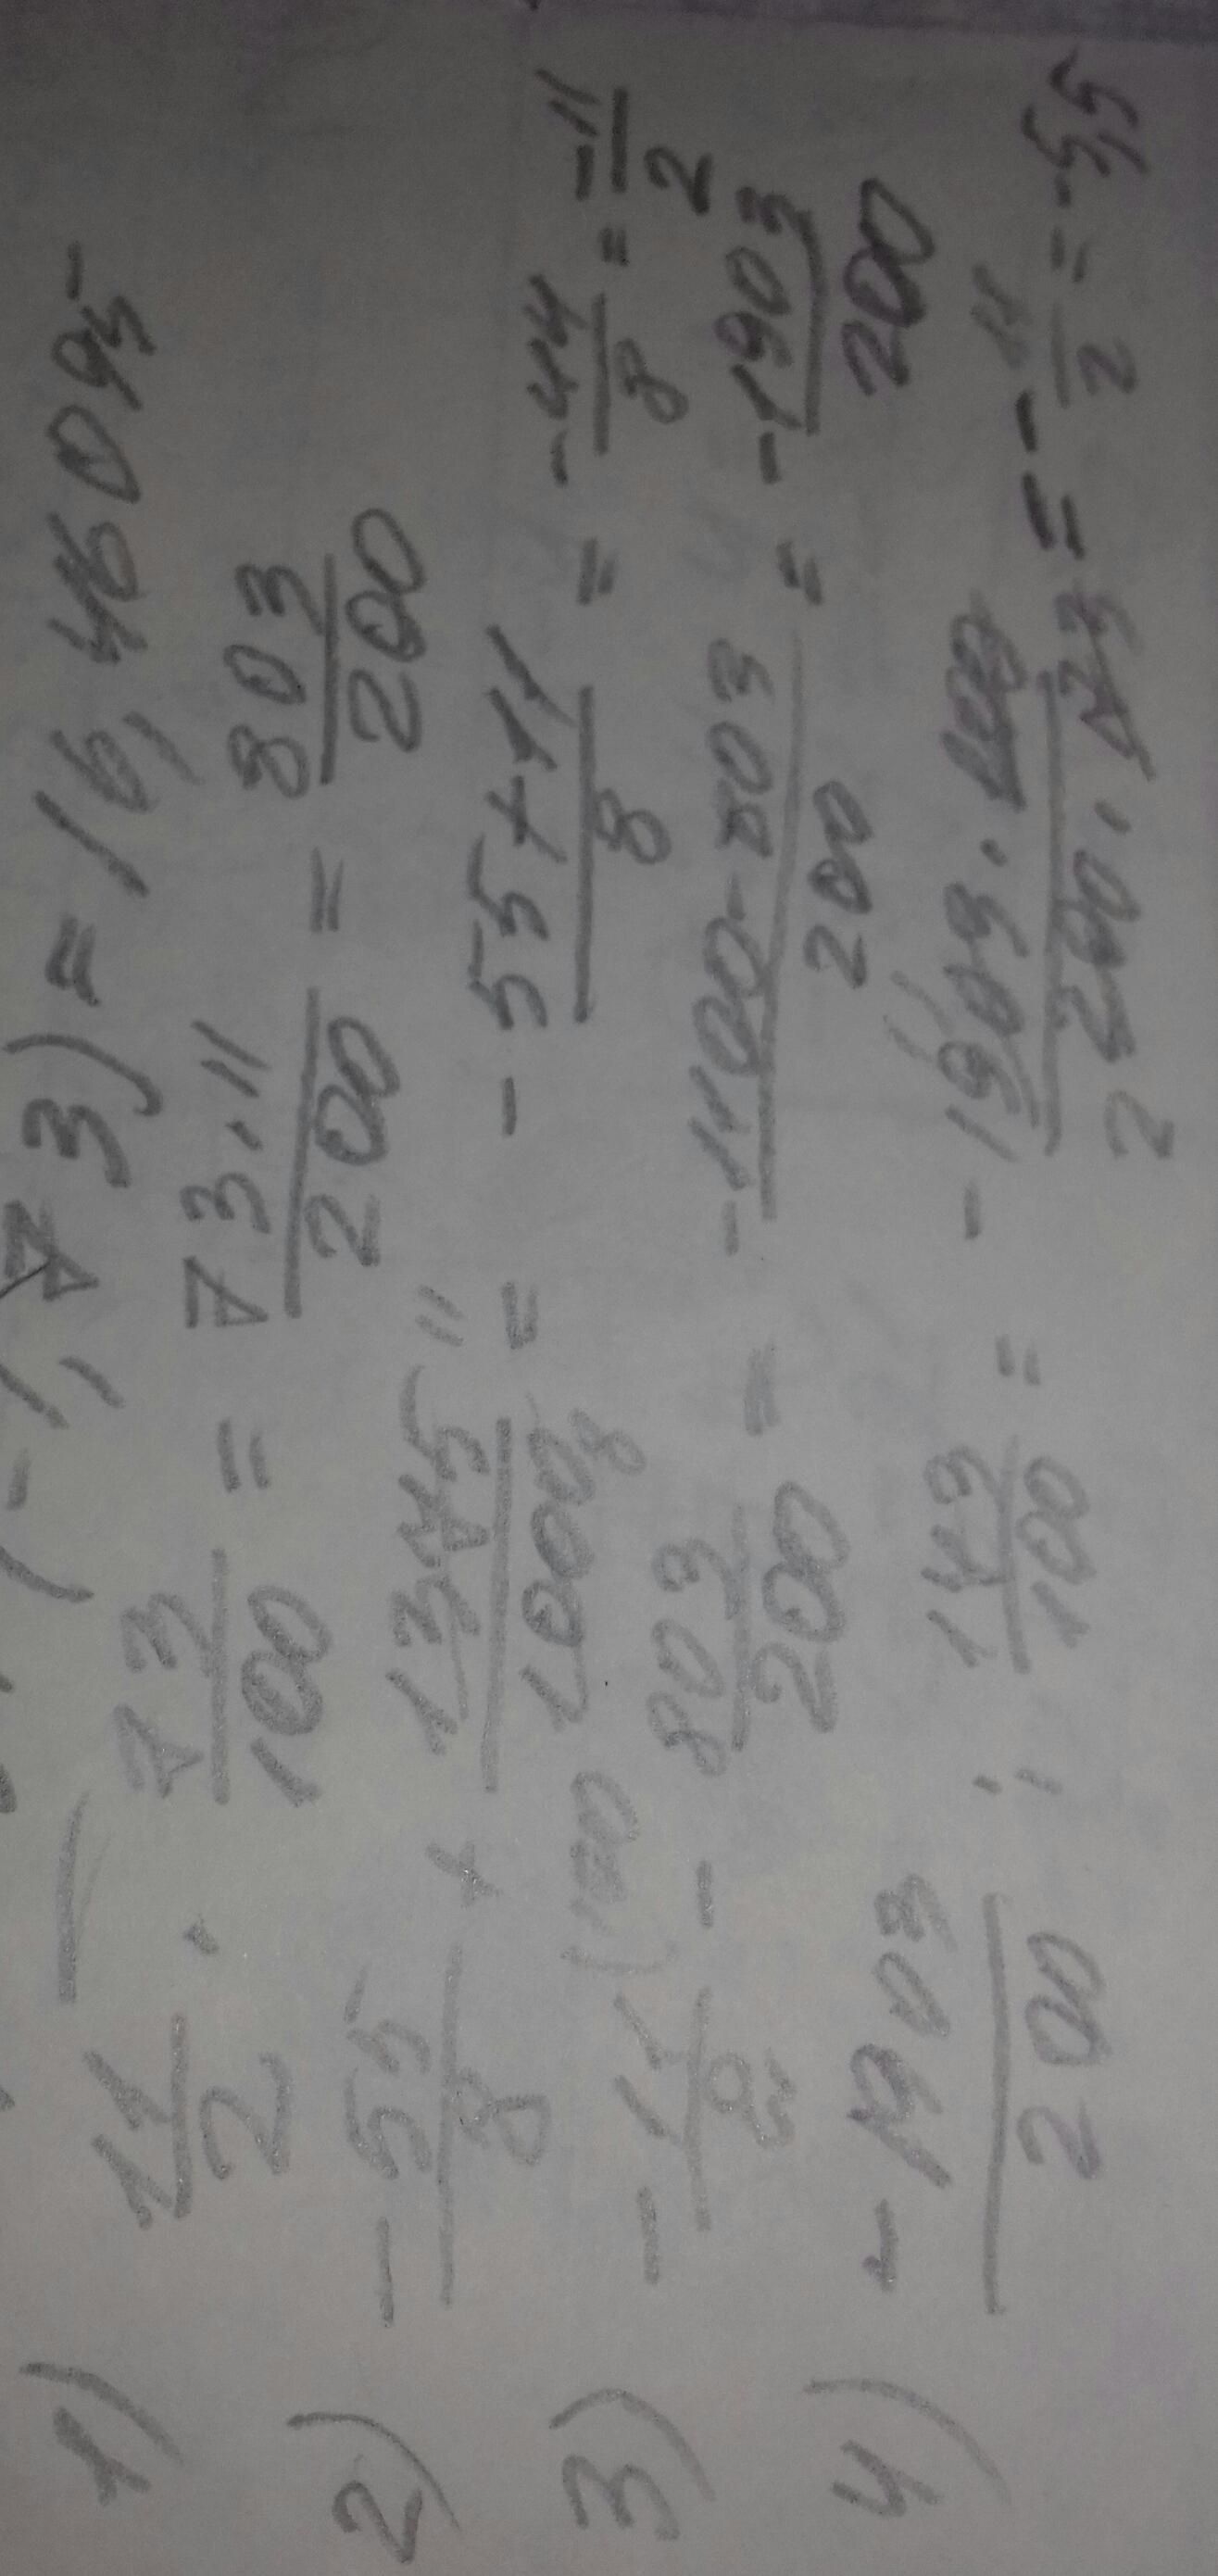 (-1,73) = 16,46095
1) 11/2 · 73/100 = 73·11/200 = 803/200
2) -55/8 + 1375/1000 = -55+11/8 = -44/8 = -11/2
3) -11/2 (100 - 803/200 = -1100-803/200 = -1903/200
4) -1903/200 : 173/100 = -1903·100/200·173 = -11/2 = -5,5